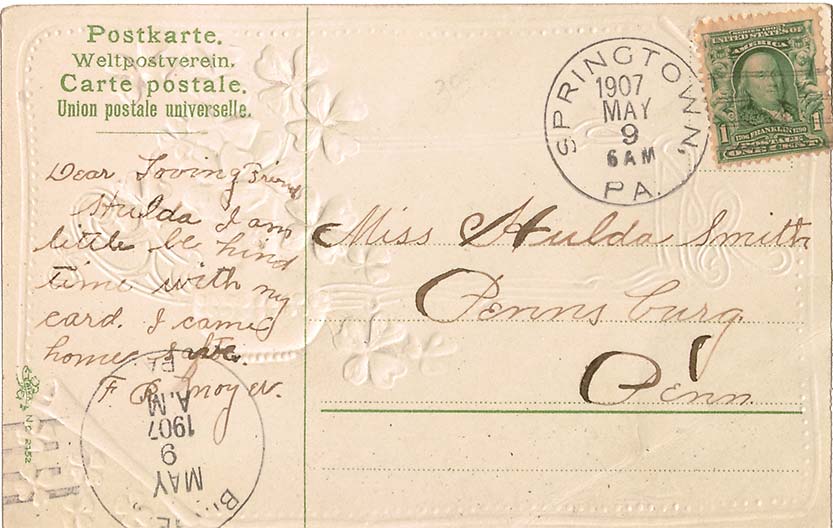 Postkarte.
Weltpostverein.
Carte postale.
Union postale universelle.
Dear Loving Friend
Hulda I am
little be hind
time with my
card. I came
home safte.
F R moyer.
No 2152
SPRINGTOWN,
1907
MAY
9
6 AM
PA.
UNITED STATES OF
AMERICA
1 FRANKLIN 1
POSTAGE
ONE CENT
Miss Hulda Smith
Pennsburg
Penn
MAY
9
1907
A.M
PA.